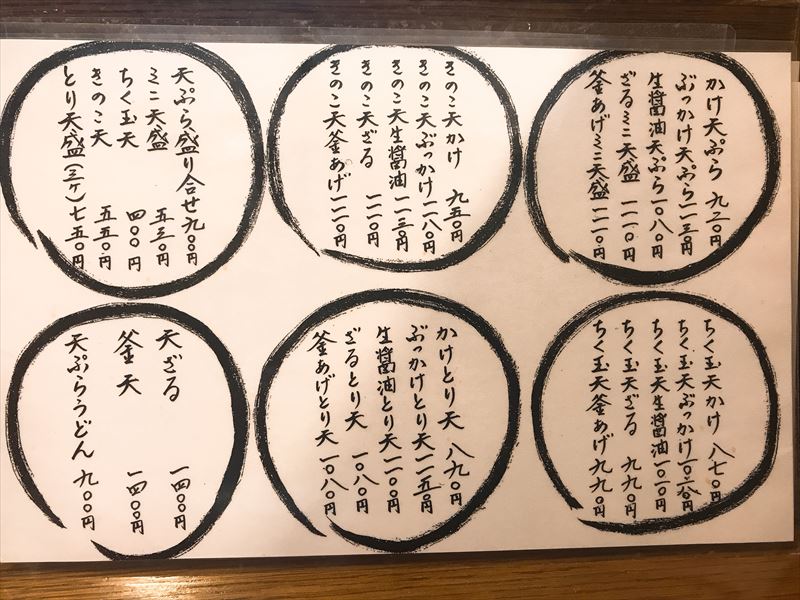 かけ天ぷら 九三〇円
ぶっかけ天ぷら一一三〇円
生醤油天ぷら一〇八〇円
ざるミニ天盛 一一一〇円
釜あげミニ天盛一一一〇円
きのこ天かけ 九五〇円
きのこ天ぶっかけ一一八〇円
きのこ天生醤油一一三〇円
きのこ天ざる 一一一〇円
きのこ天釜あげ一一一〇円
天ぷら盛り合せ九〇〇円
ミニ天盛 五三〇円
ちく玉天 四〇〇円
きのこ天 五五〇円
とり天盛(三ケ)七五〇円
ちく玉天かけ 八七〇円
ちく玉天ぶっかけ
ちく玉天生醤油一〇一〇円
ちく玉天ざる 九九〇円
ちく玉天釜あげ九九〇円
かけとり天 八九〇円
ぶっかけとり天一一五〇円
生醤油とり天一一〇〇円
ざるとり天 一〇八〇円
釜あげとり天一〇八〇円
天ざる 一四〇〇円
釜天 一四〇〇円
天ぷらうどん 九〇〇円